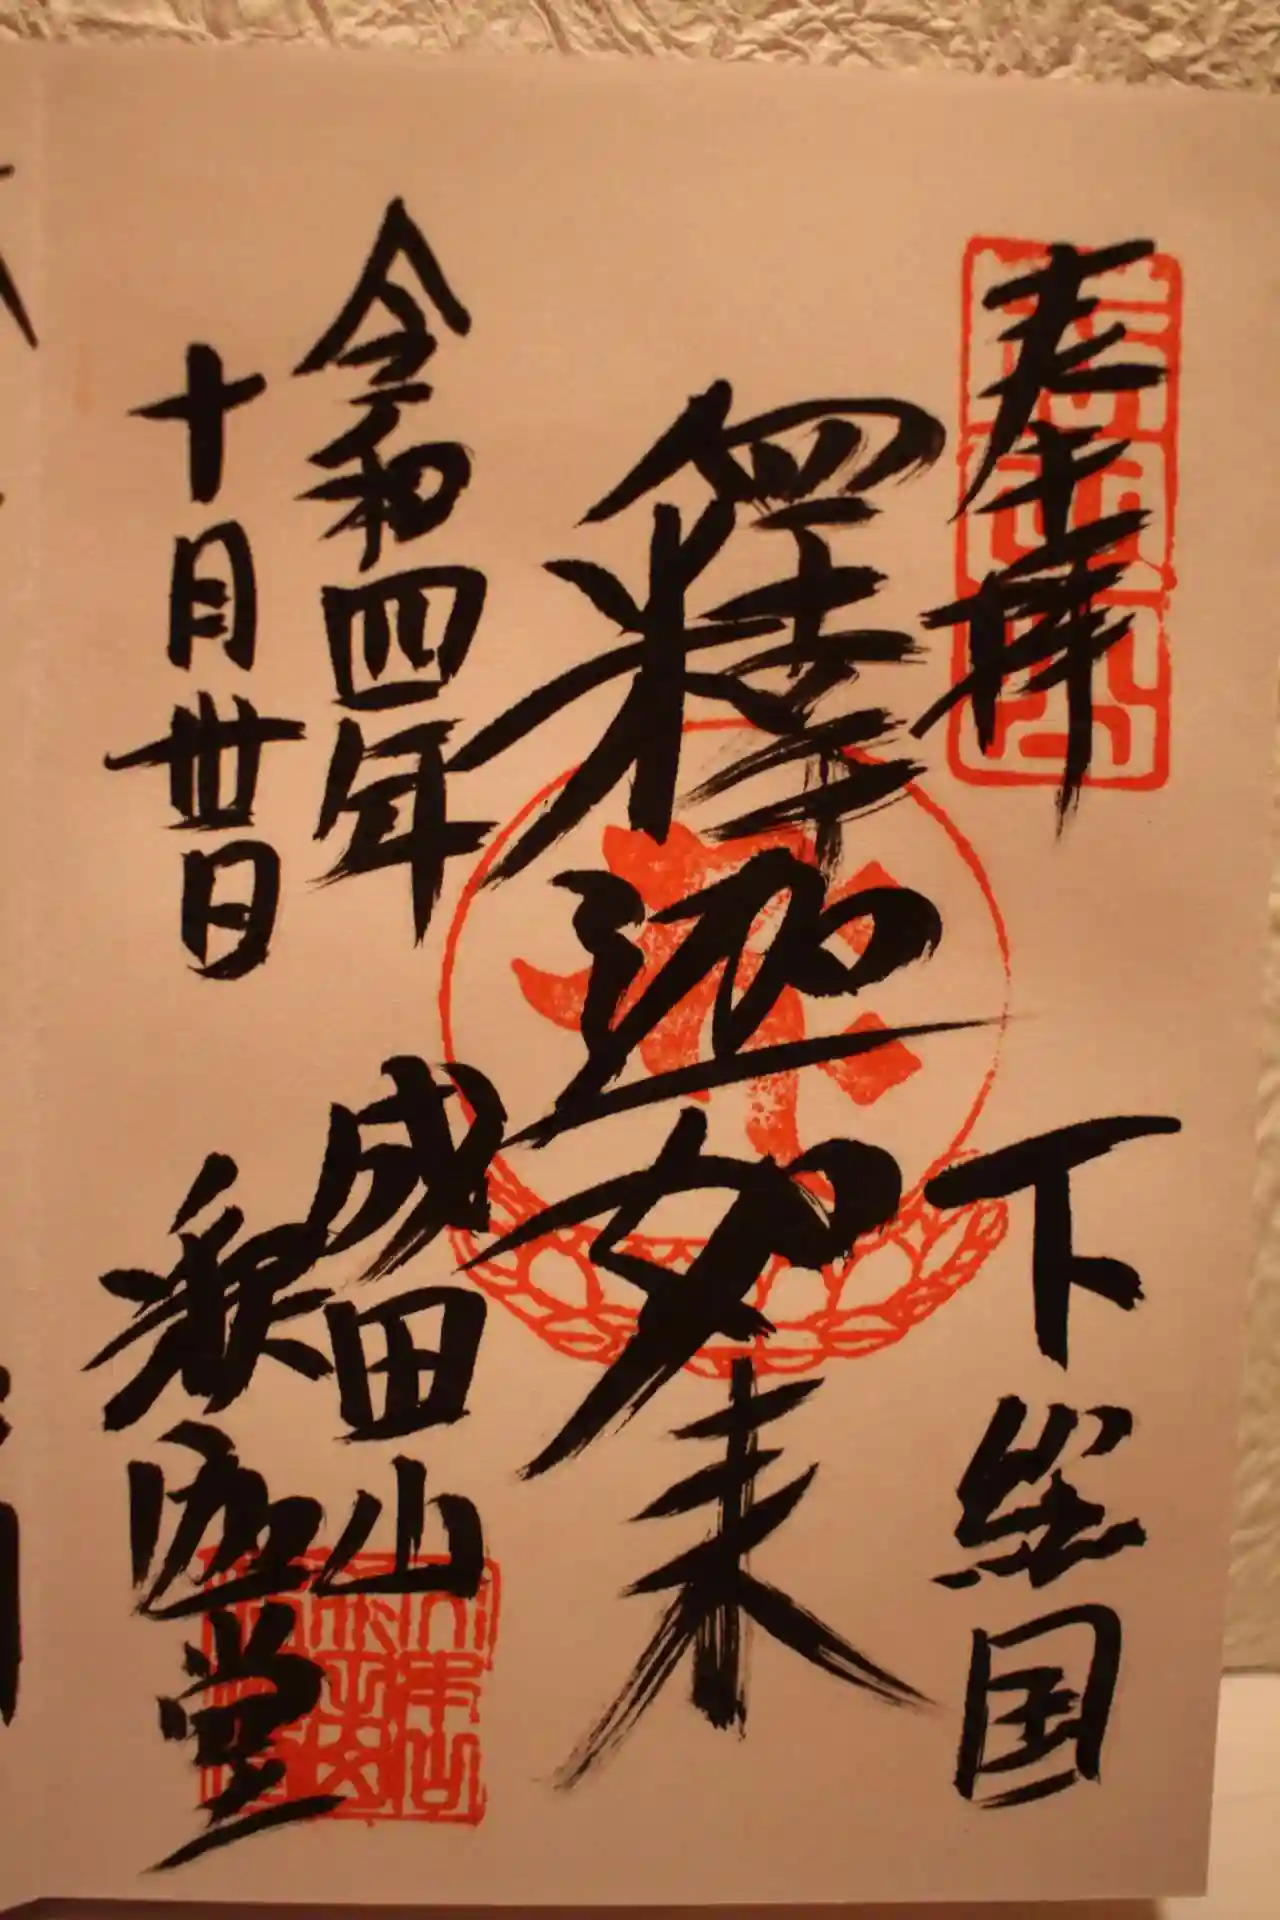 奉拝
下総国
釋迦如来
令和四年
十月丗日
成田山
釈迦堂